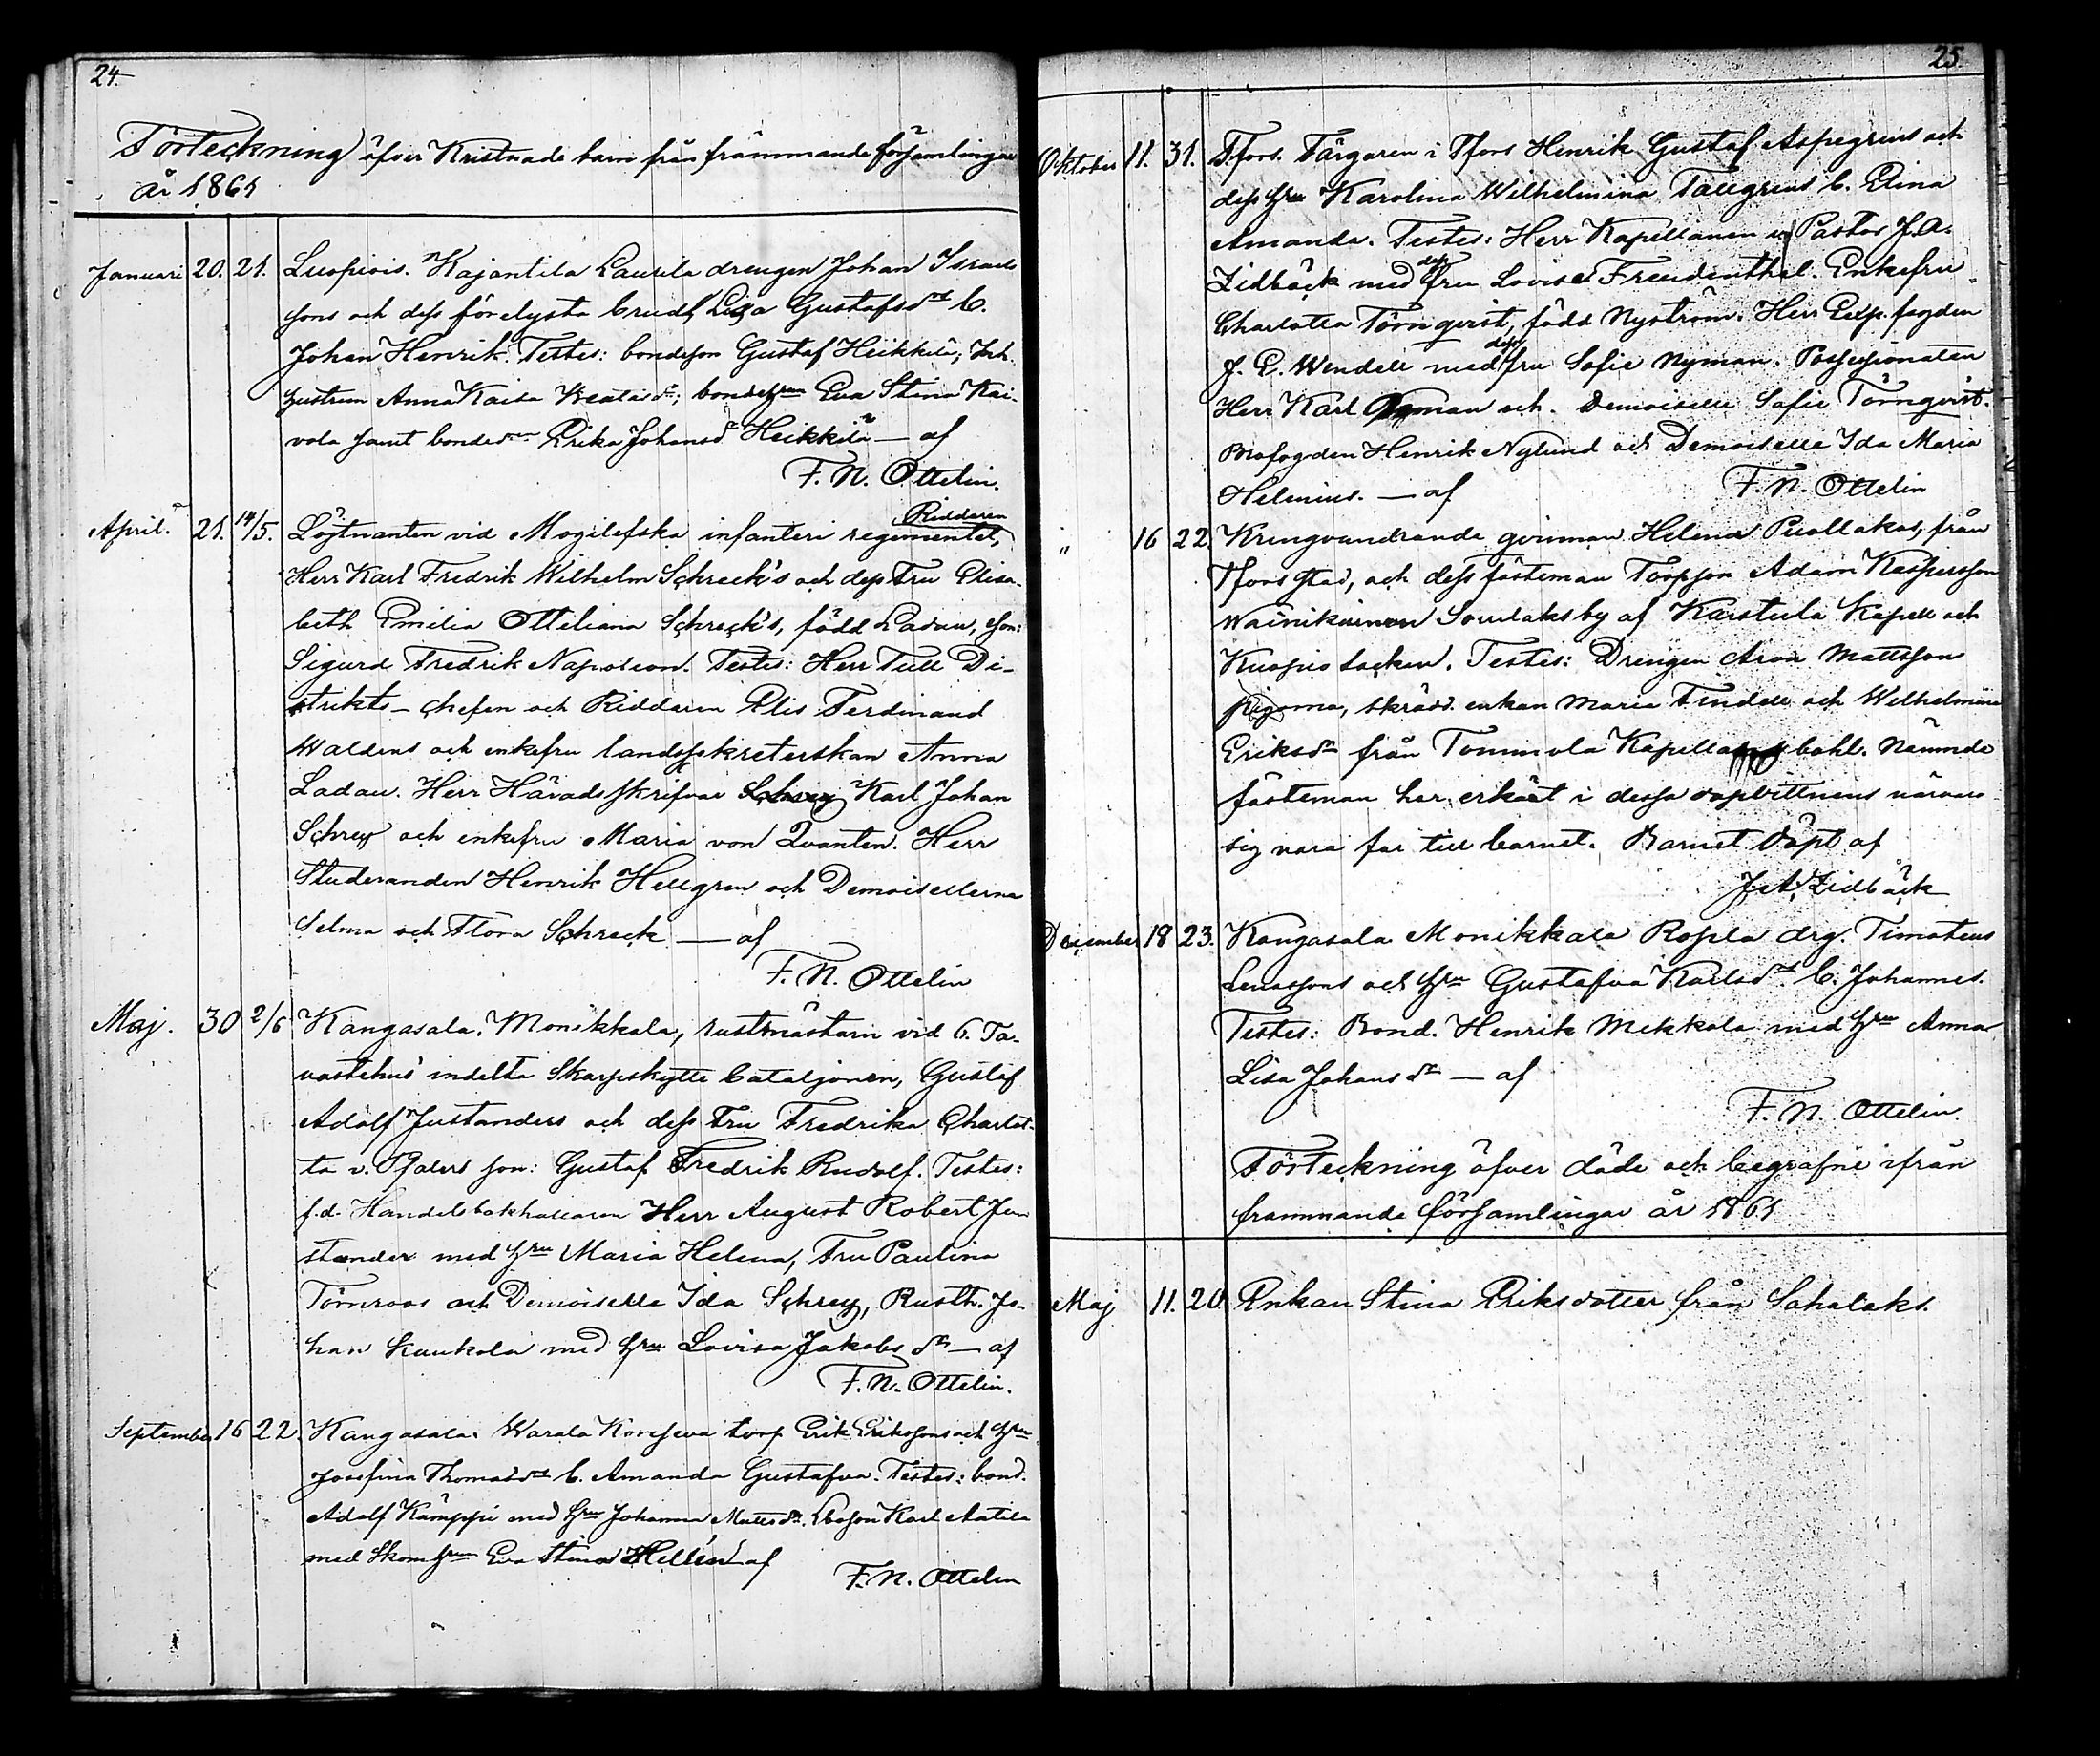 24.
Förteckning öfver Kristnade barn från främmande församlingar
år 1861
Januari 20. 21. Luopiois. Kajantila Laurila drengen Johan Israels
sons och dess förelysta brud, Lisa Gustafsdrs b.
Johan Henrik. Testes: bondeson Gustaf Heikkilä, Inh.
hustrun Anna Kaisa dr; bondehrun Eva Stina Kai-
vola samt bonded Erika Johansdr Heikkilä — af
F. N. Ottelin.
April. 21. 14/5. Löjtnanten vid Mogilefska infanteri regimentet, Riddaren
Herr Karl Fredrik Wilhelm Schreck's och dess Fru Elisa-
beth Emilia Otteliana Schreck's, född Ladau, son:
Sigurd Fredrik Napoleon. Testes: Herr Tull Di-
strikts-chefen och Riddaren Elis Ferdinand
Waldens och enkefru landssekreterskan Anna
Ladau. Herr Häradsskrifvar Karl Johan
Schrey och enkefru Maria von Qvanten. Herr
Studeranden Henrik Hellgren och Demoisellerna
Selma och Flora Schreck — af
F. N. Ottelin
Maj. 30 2/6 Kangasala. Monikkala, rustmästarn vid 6. Ta-
vastehus' indelta Skarpskytte bataljonen, Gustaf
Adolf Justanders och dess Fru Fredrika Charlot-
ta v. son: Gustaf Fredrik Rudolf. Testes:
f.d. Handelsbokhållaren Herr August Robert Ju-
stander med hru Maria Helena, Fru Paulina
Törnroos och Demoiselle Ida Schrey, Rusth. Jo-
han Kaukola med hru Lovisa Jakobs dr — af
F. N. Ottelin.
September 16 22. Kangasala. Warala torp. Erik Erikssons och hru
Josefina Thomasdrs b. Amanda Gustafva. Testes: bond.
Adolf Kämppi med hru Johanna Mattsdr. Karl Aatila
med Skom hrun Eva Stina Hellén af
F. N. Ottelin
25.
Oktober 11. 31. T.fors. Färgaren i Tfors Henrik Gustaf Aspegrens och
dess hru Karolina Wilhelmina Tallgrens b. Elina
Amanda. Testes: Herr Kapellanen v. Pastor J. A.
Lidbäck med dess fru Lovisa Freudenthal. Enkefru
Charlotta Törnqvist, född Nyström. Herr Exp. fogden
J. E. Wendell med dess fru Sofie Nyman. Possessionaten
Herr Karl Nyman och Demoiselle Sofie Törnqvist.
Brofogden Henrik Nylund och Demoiselle Ida Maria
Helenius. — af F. N. Ottelin
" 16 22. Kringvandrande qvinnan Helena Puollakas, från
Tfors stad, och dess fästeman Torpson Adam Kaspersson
Wainikainen Sourlaks by af Karstula Kapell och
Kuopio socken. Testes: Drengen Aron Mattsson
pigorna, skrädd. enkan Maria Findell och Wilhelmina
Eriksdr från Tommola Kapellans bohl. Nämnde
fästeman har erkänt i dessa dopvittnens närvaro
sig vara far till barnet. Barnet döpt af
J. A. Lidbäck
December 18 23. Kangasala Monikkala Ropla drg. Timoteus
Lenassons och hru Gustafva Karlsdrs b. Johannes.
Testes: Bond. Henrik Mekkola med hru Anna
Lisa Johans dr — af
F. N. Ottelin.
Förteckning öfver döde och begrafne ifrån
frammande församlingar år 1861
Maj 11. 20 Enkan Stina Eriksdotter från Sahalaks.